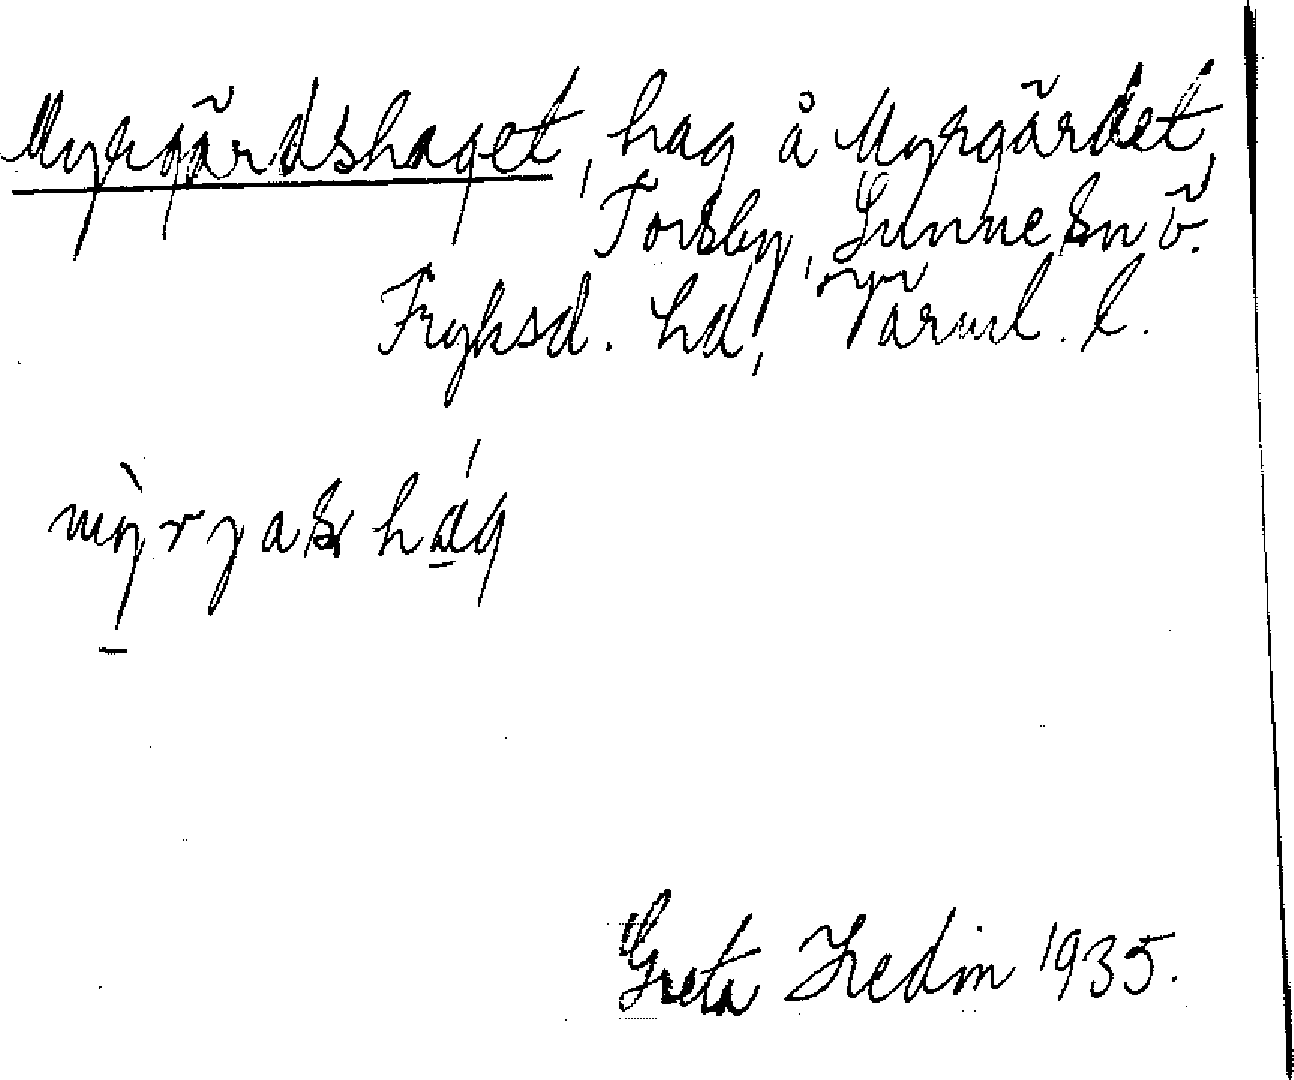 Myrgärdshaget, hag å Myrgärdet,
Torsby, Sunne sn ö.
Fryksd. hd, Värml. l.
mỳ̠r ȷ a s h á̠g
Greta Hedin 1935.